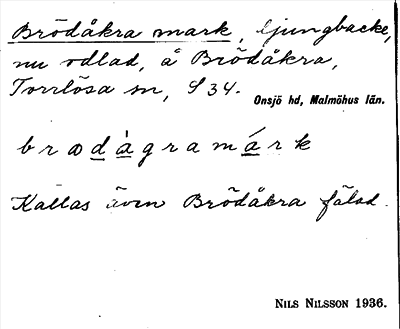 Brödåkra mark, ljungbacke,
nu odlad, å Brödåkra,
Torrlösa sn, S 34.
Onsjö hd, Malmöhus län.
brodågramárk
Kallas även Brödåkra fälad.
NILS NILSSON 1936.